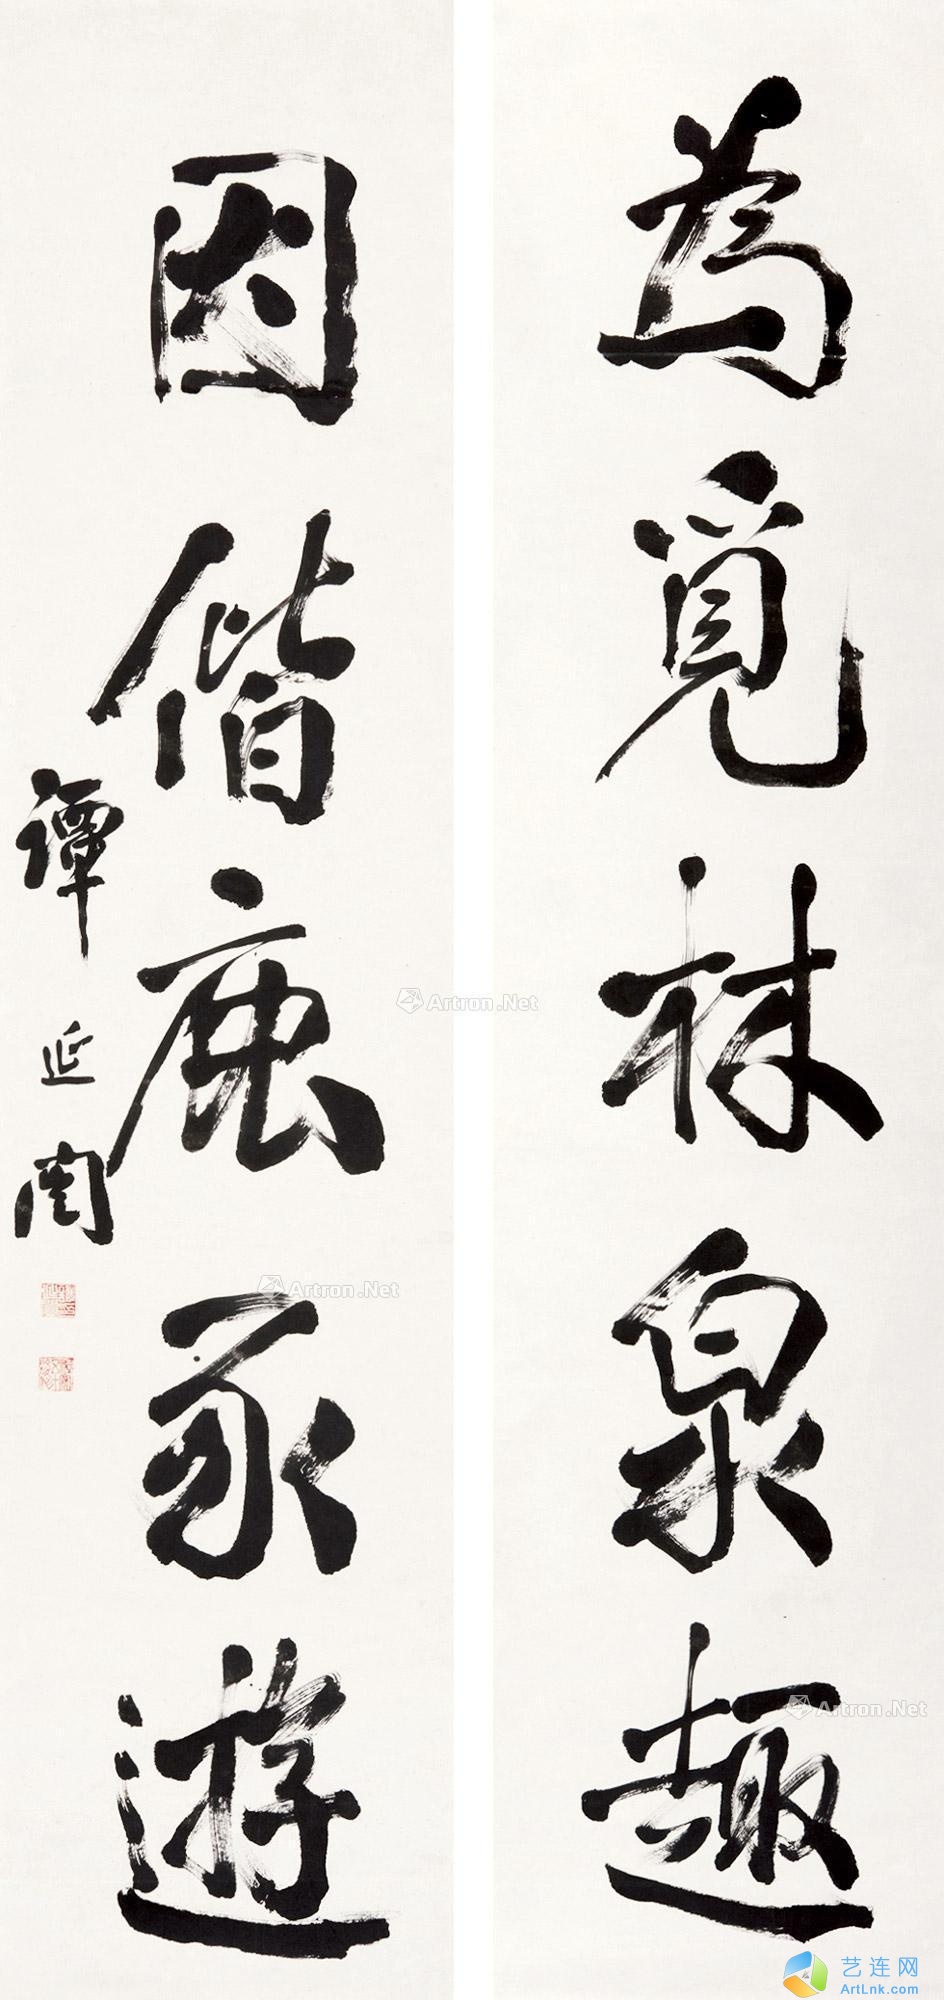 為覓林泉趣
因偕鹿豕遊
譚延闓
Artron.Net
Artron.Net
Artron.Net
艺连网
ArtLnk.com